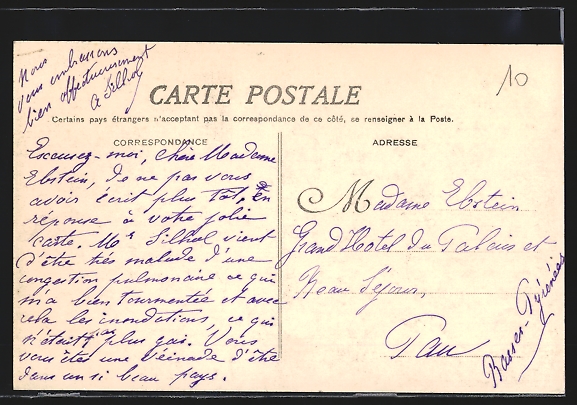 Nous
vous embrassons
bien affectueusement
A Silhol
10
CARTE POSTALE
Certains pays étrangers n'acceptant pas la correspondance de ce côté, se renseigner à la Poste.
CORRESPONDANCE
ADRESSE
Excusez-moi, chère Madame
Ebstein, de ne pas vous
avoir écrit plus tôt, En
réponse à votre jolie
carte. Mr Silhol vient
d'être très malade d'une
congestion pulmonaire ce qui
m'a bien tourmentée et avec
cela les inondations, ce qui
n'était pas plus gai. Vous
vous êtes une veinade d'être
dans un si beau pays.
Madame Ebstein
Grand Hotel du Palais et
Beau Séjour,
Pau
Basses-Pyrénées